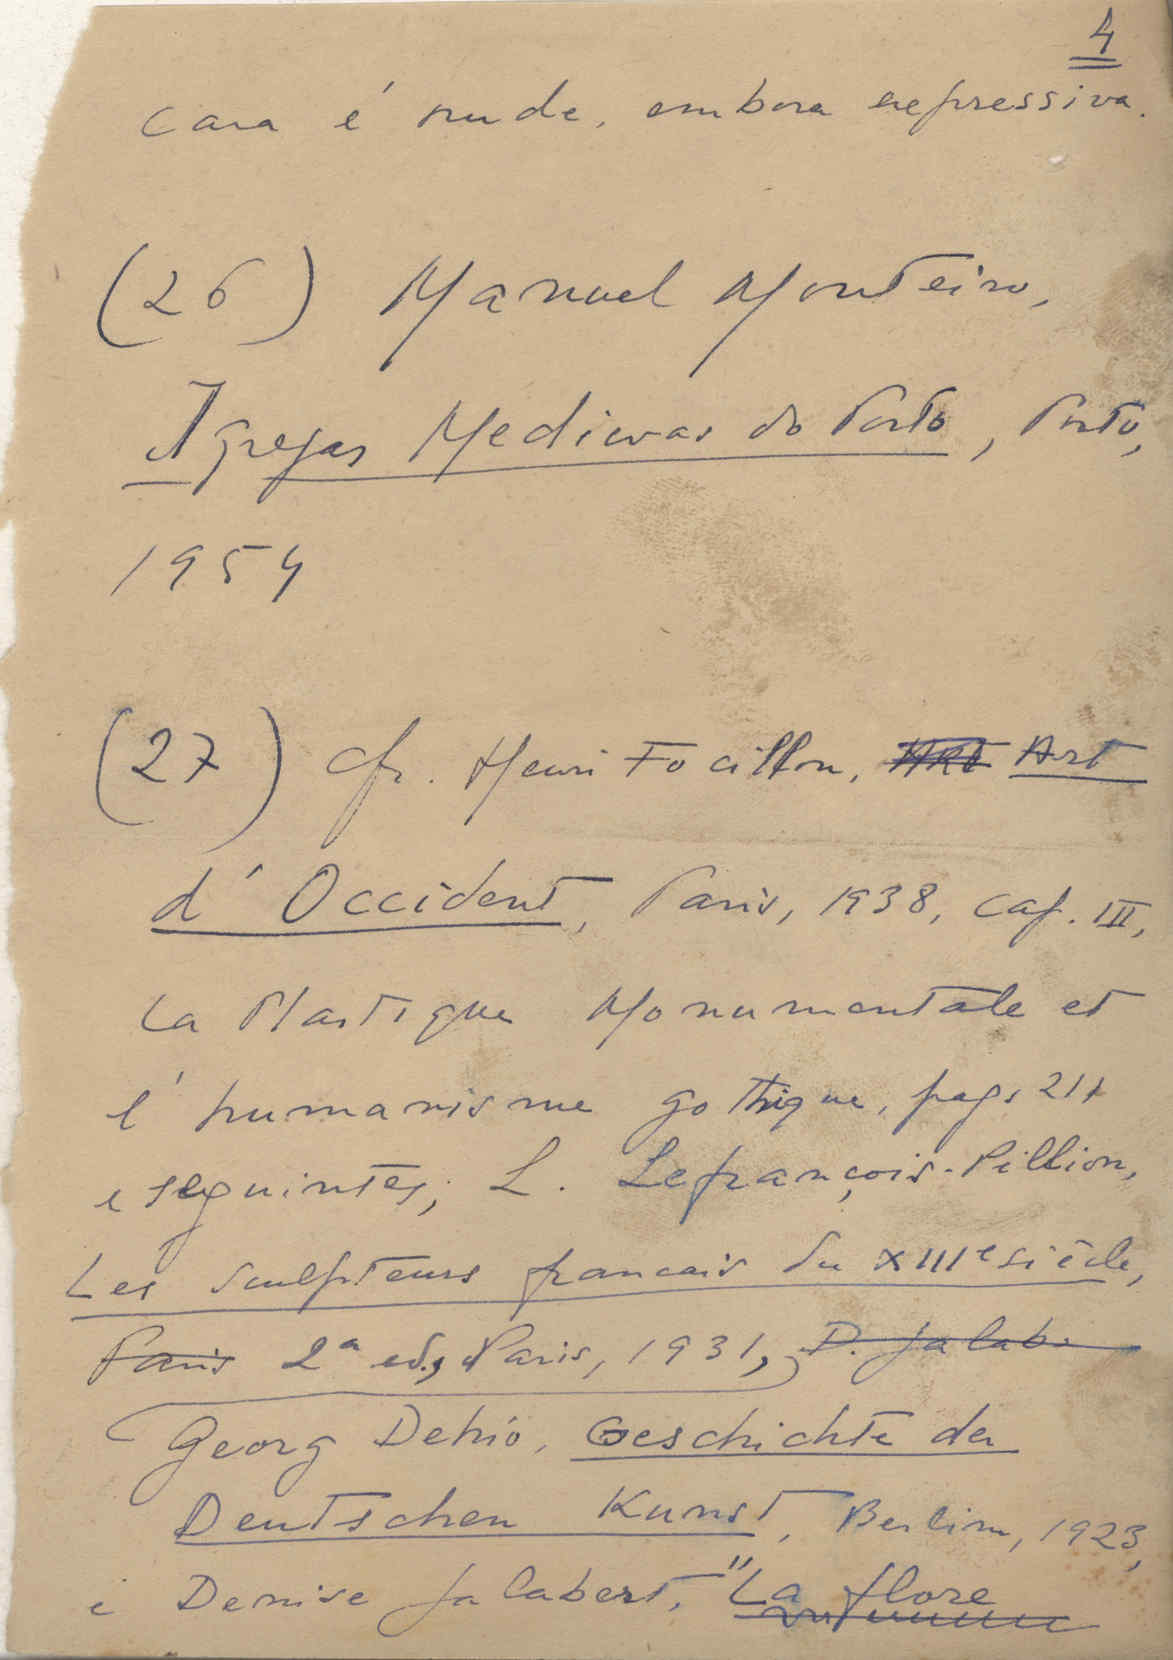 4
cara é rude, embora expressiva.
(26) Manuel Monteiro,
Igrejas Medievas do Porto, Porto,
1954
(27) Cfr. Henri Focillon, Art Art
d'Occident, Paris, 1938, cap. III,
La Plastique Monumentale et
l'humanisme gothique, pags 217
e seguintes; L. Lefrançois-Pillion,
Les sculpteurs francais du XIIIe siècle,
Paris 2ª ed., Paris, 1931, D. Jalab.
Georg Dehio, Geschichte der
Deutschen Kunst, Berlim, 1923,
e Denise Jalabert, "La flore